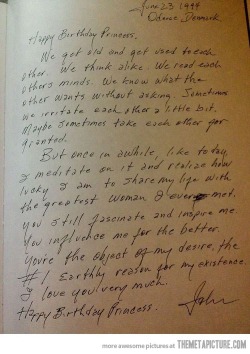 June 23 1994
Odense Denmark.
Happy Birthday Princess,
We get old and get used to each
other. We think alike. We read each
others minds. We know what the
other wants without asking. Sometimes
we irritate each other a little bit.
Maybe sometimes take each other for
granted.
But once in awhile, like today,
I meditate on it and realize how
lucky I am to share my life with
the greatest woman I ever met.
You still fascinate and inspire me.
You influence me for the better.
You're the object of my desire, the
#1 Earthly reason for my existence.
I love you very much.
Happy Birthday Princess.
John
more awesome pictures at THEMETAPICTURE.COM